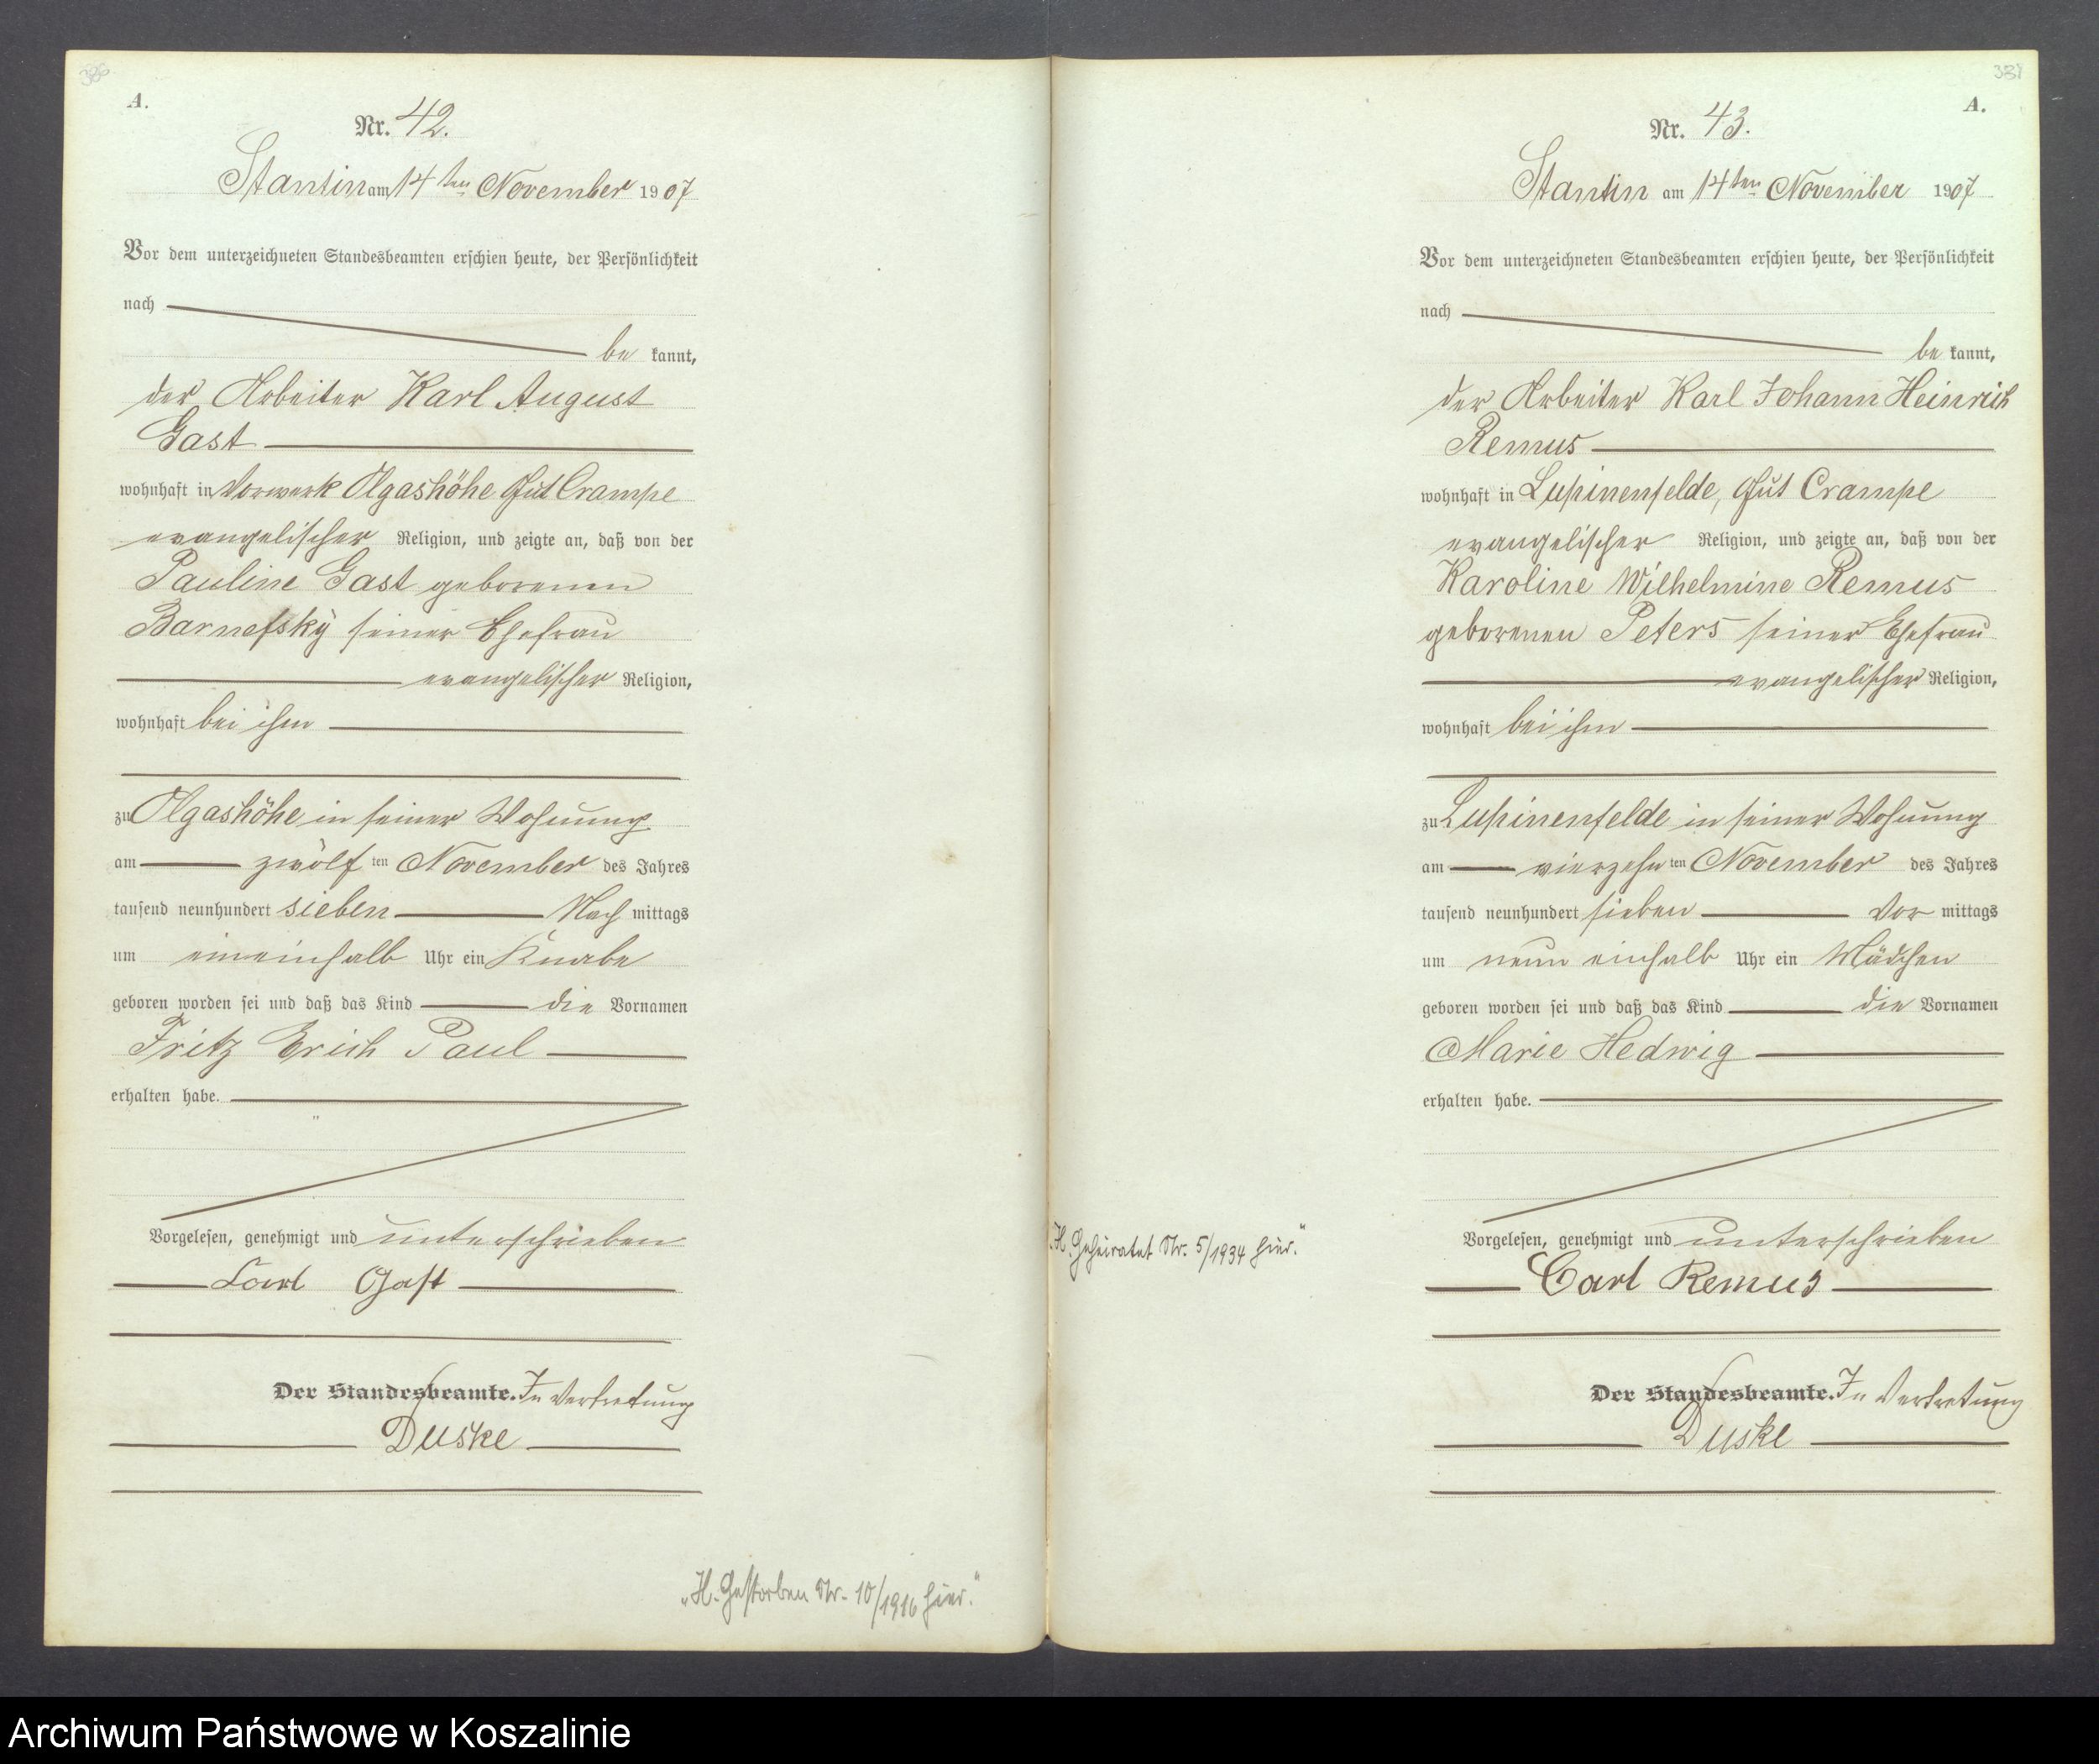 A.
Nr. 42.
Stantin am 14ten November 1907
Vor dem unterzeichneten Standesbeamten erschien heute, der Persönlichkeit
nach
be kannt,
der Arbeiter Karl August
Gast
wohnhaft in Vorwerk Olgashöhe Gut Crampe
evangelischer Religion, und zeigte an, daß von der
Pauline Gast geborenen
seiner Ehefrau
evangelischer Religion,
wohnhaft bei ihm
zu Olgashöhe in seiner Wohnung
am zwölf ten November des Jahres
tausend neunhundert sieben Nach mittags
um eineinhalb Uhr ein Knabe
geboren worden sei und daß das Kind die Vornamen
Fritz Erich Paul
erhalten habe.
Vorgelesen, genehmigt und unterschrieben
Carl Gast
Der Standesbeamte. In Vertretung
Duske
„H. Gestorben Nr. 10/1916 hier."
A.
Nr. 43.
Stantin am 14ten November 1907
Vor dem unterzeichneten Standesbeamten erschien heute, der Persönlichkeit
nach
be kannt,
der Arbeiter Karl Johann Heinrich
Remus
wohnhaft in Lupinenfelde, Gut Crampe
evangelischer Religion, und zeigte an, daß von der
Karoline Wilhelmine Remus
geborenen Peters seiner Ehefrau
evangelischer Religion,
wohnhaft bei ihm
zu Lupinenfelde in seiner Wohnung
am vierzehn ten November des Jahres
tausend neunhundert sieben Vor mittags
um neun einhalb Uhr ein Mädchen
geboren worden sei und daß das Kind die Vornamen
Marie Hedwig
erhalten habe.
„H. Geheiratet Nr. 5/1934 hier."
Vorgelesen, genehmigt und unterschrieben
Carl Remus
Der Standesbeamte. In Vertretung
Duske
Archiwum Państwowe w Koszalinie